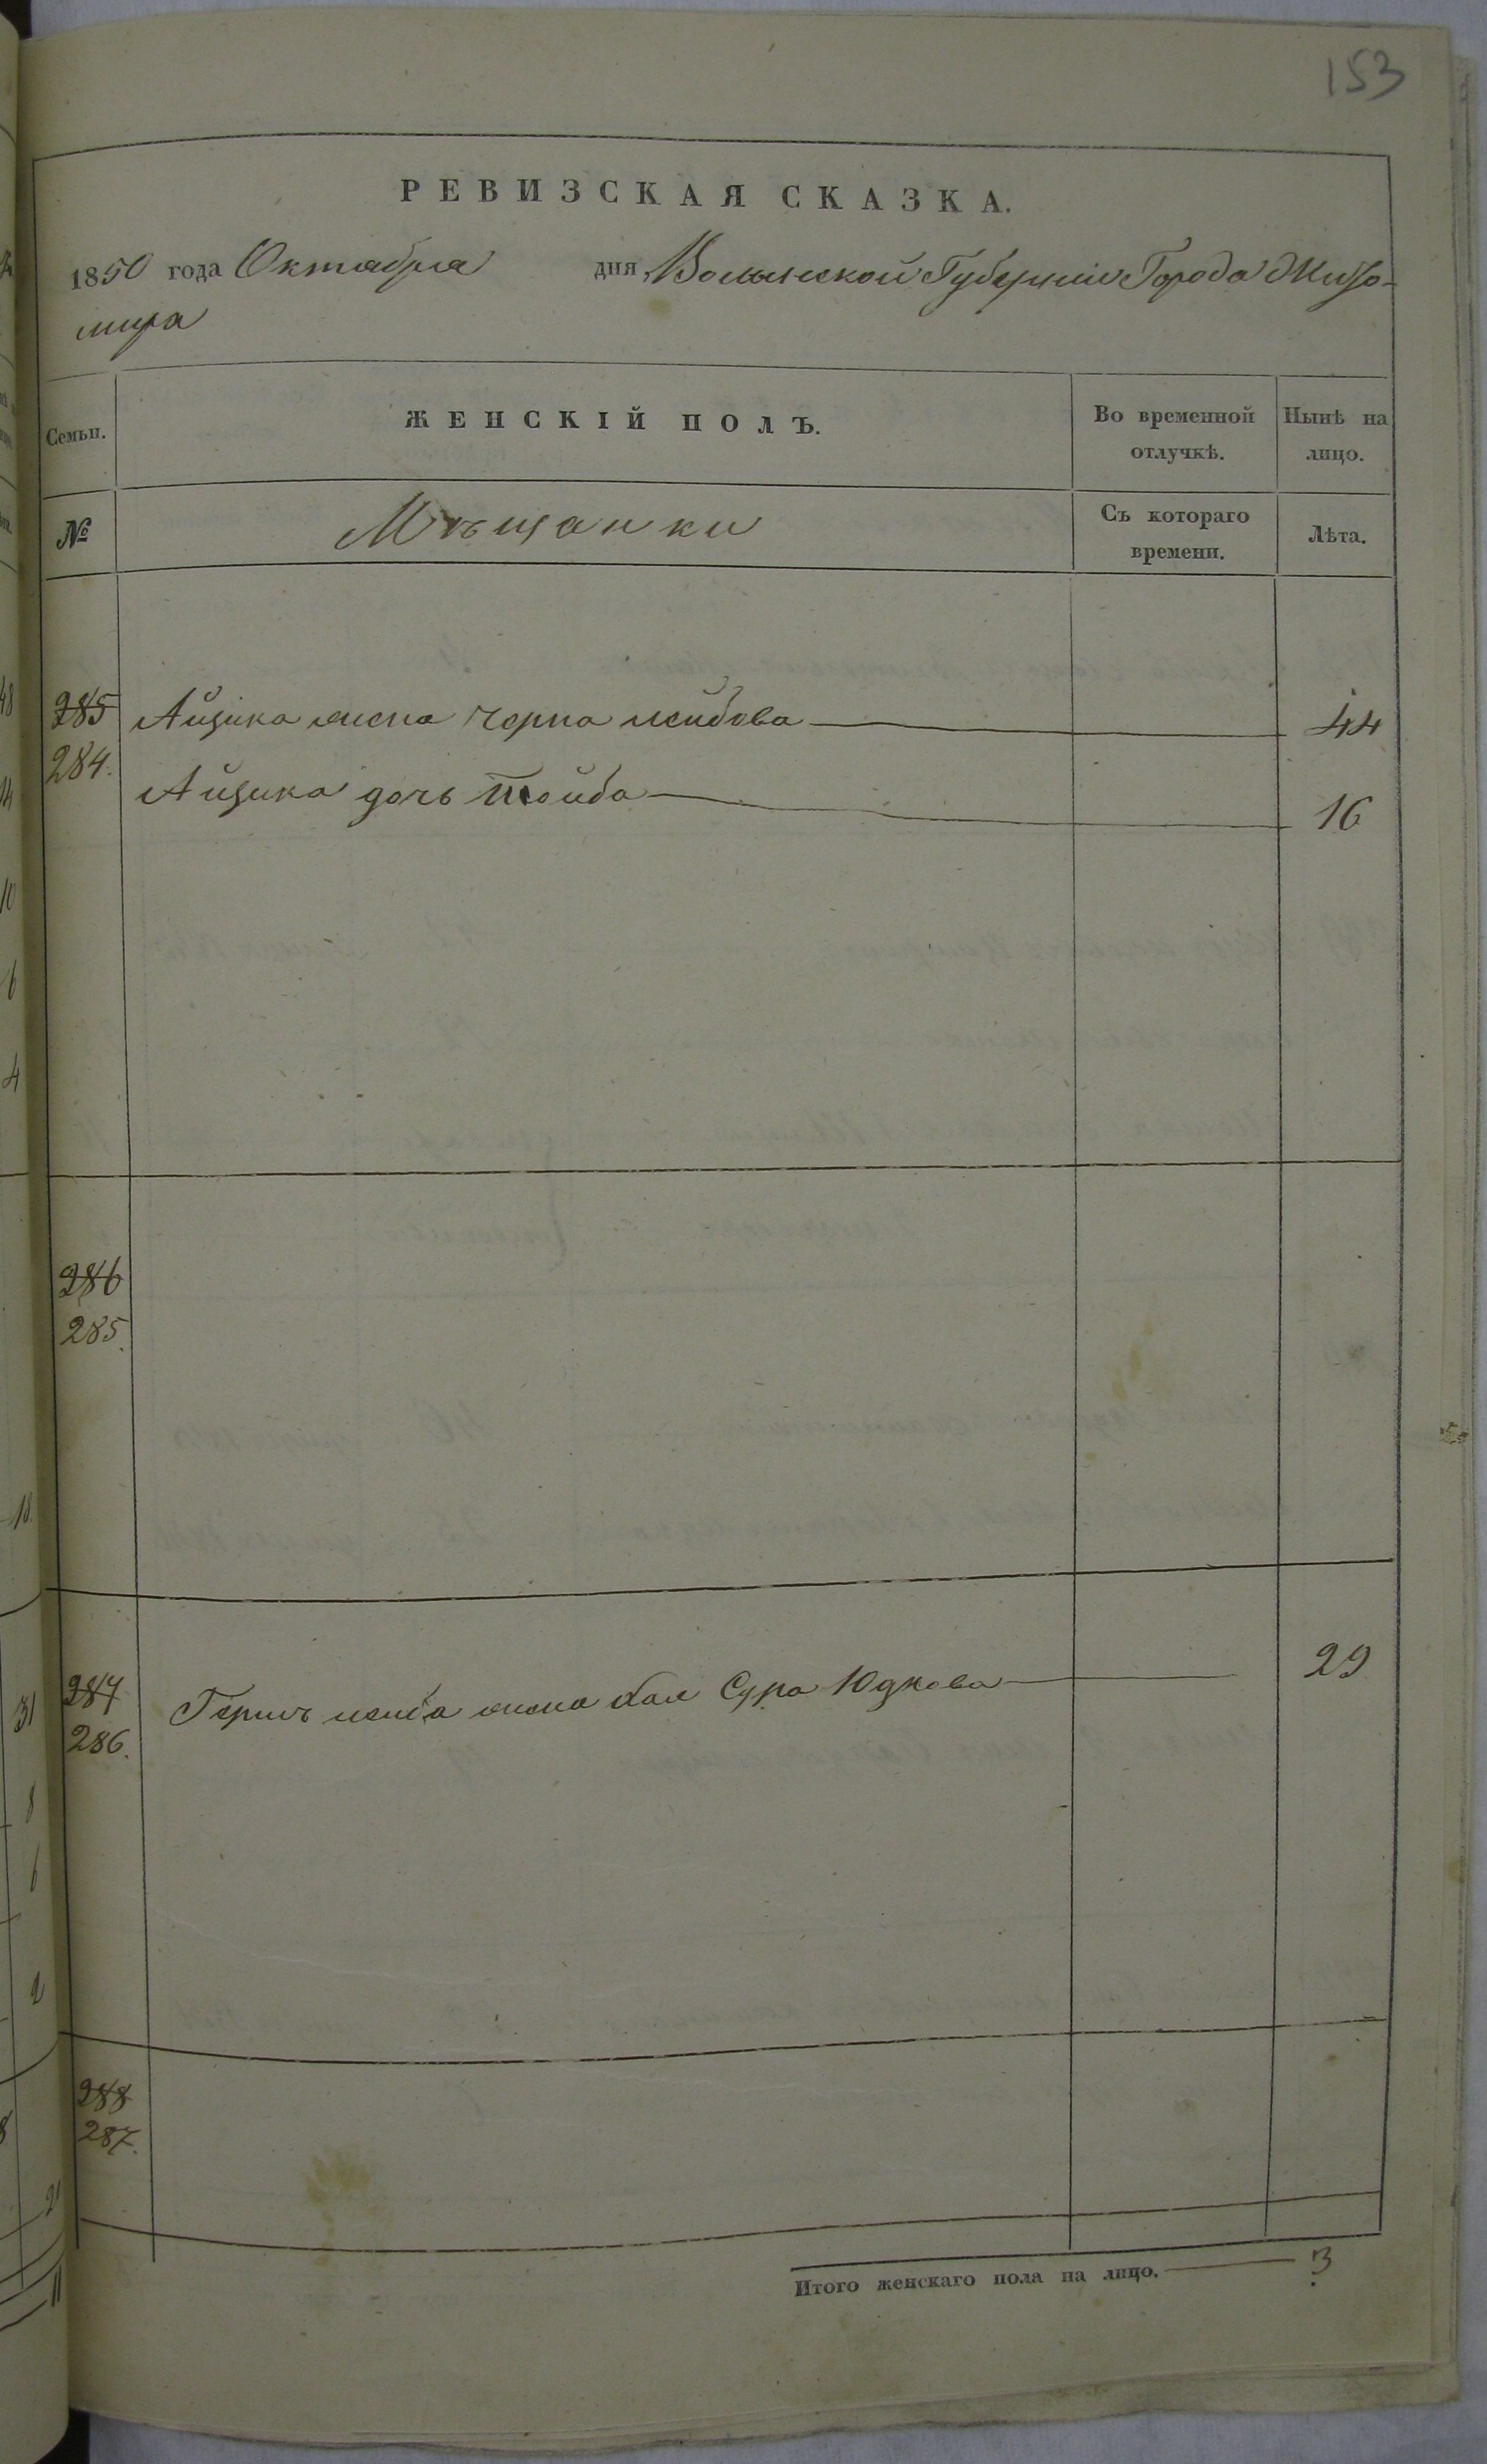 153
РЕВИЗСКАЯ СКАЗКА.
1850 года Октября дня Волынской Губерніи Города Жито-
мира
Семьи. ЖЕНСКІЙ ПОЛЪ. Во временной отлучкѣ. Нынѣ на лицо.
№ Мѣщанки Съ котораго времени. Лѣта.
285 Айзика жена Черна Лейбова 44
284.
Айзика дочь Тойба 16
286
285.
287 Гершъ Лейба жена Хая Сура Юдкова 29
286.
288
287.
Итого женскаго пола на лицо. 3